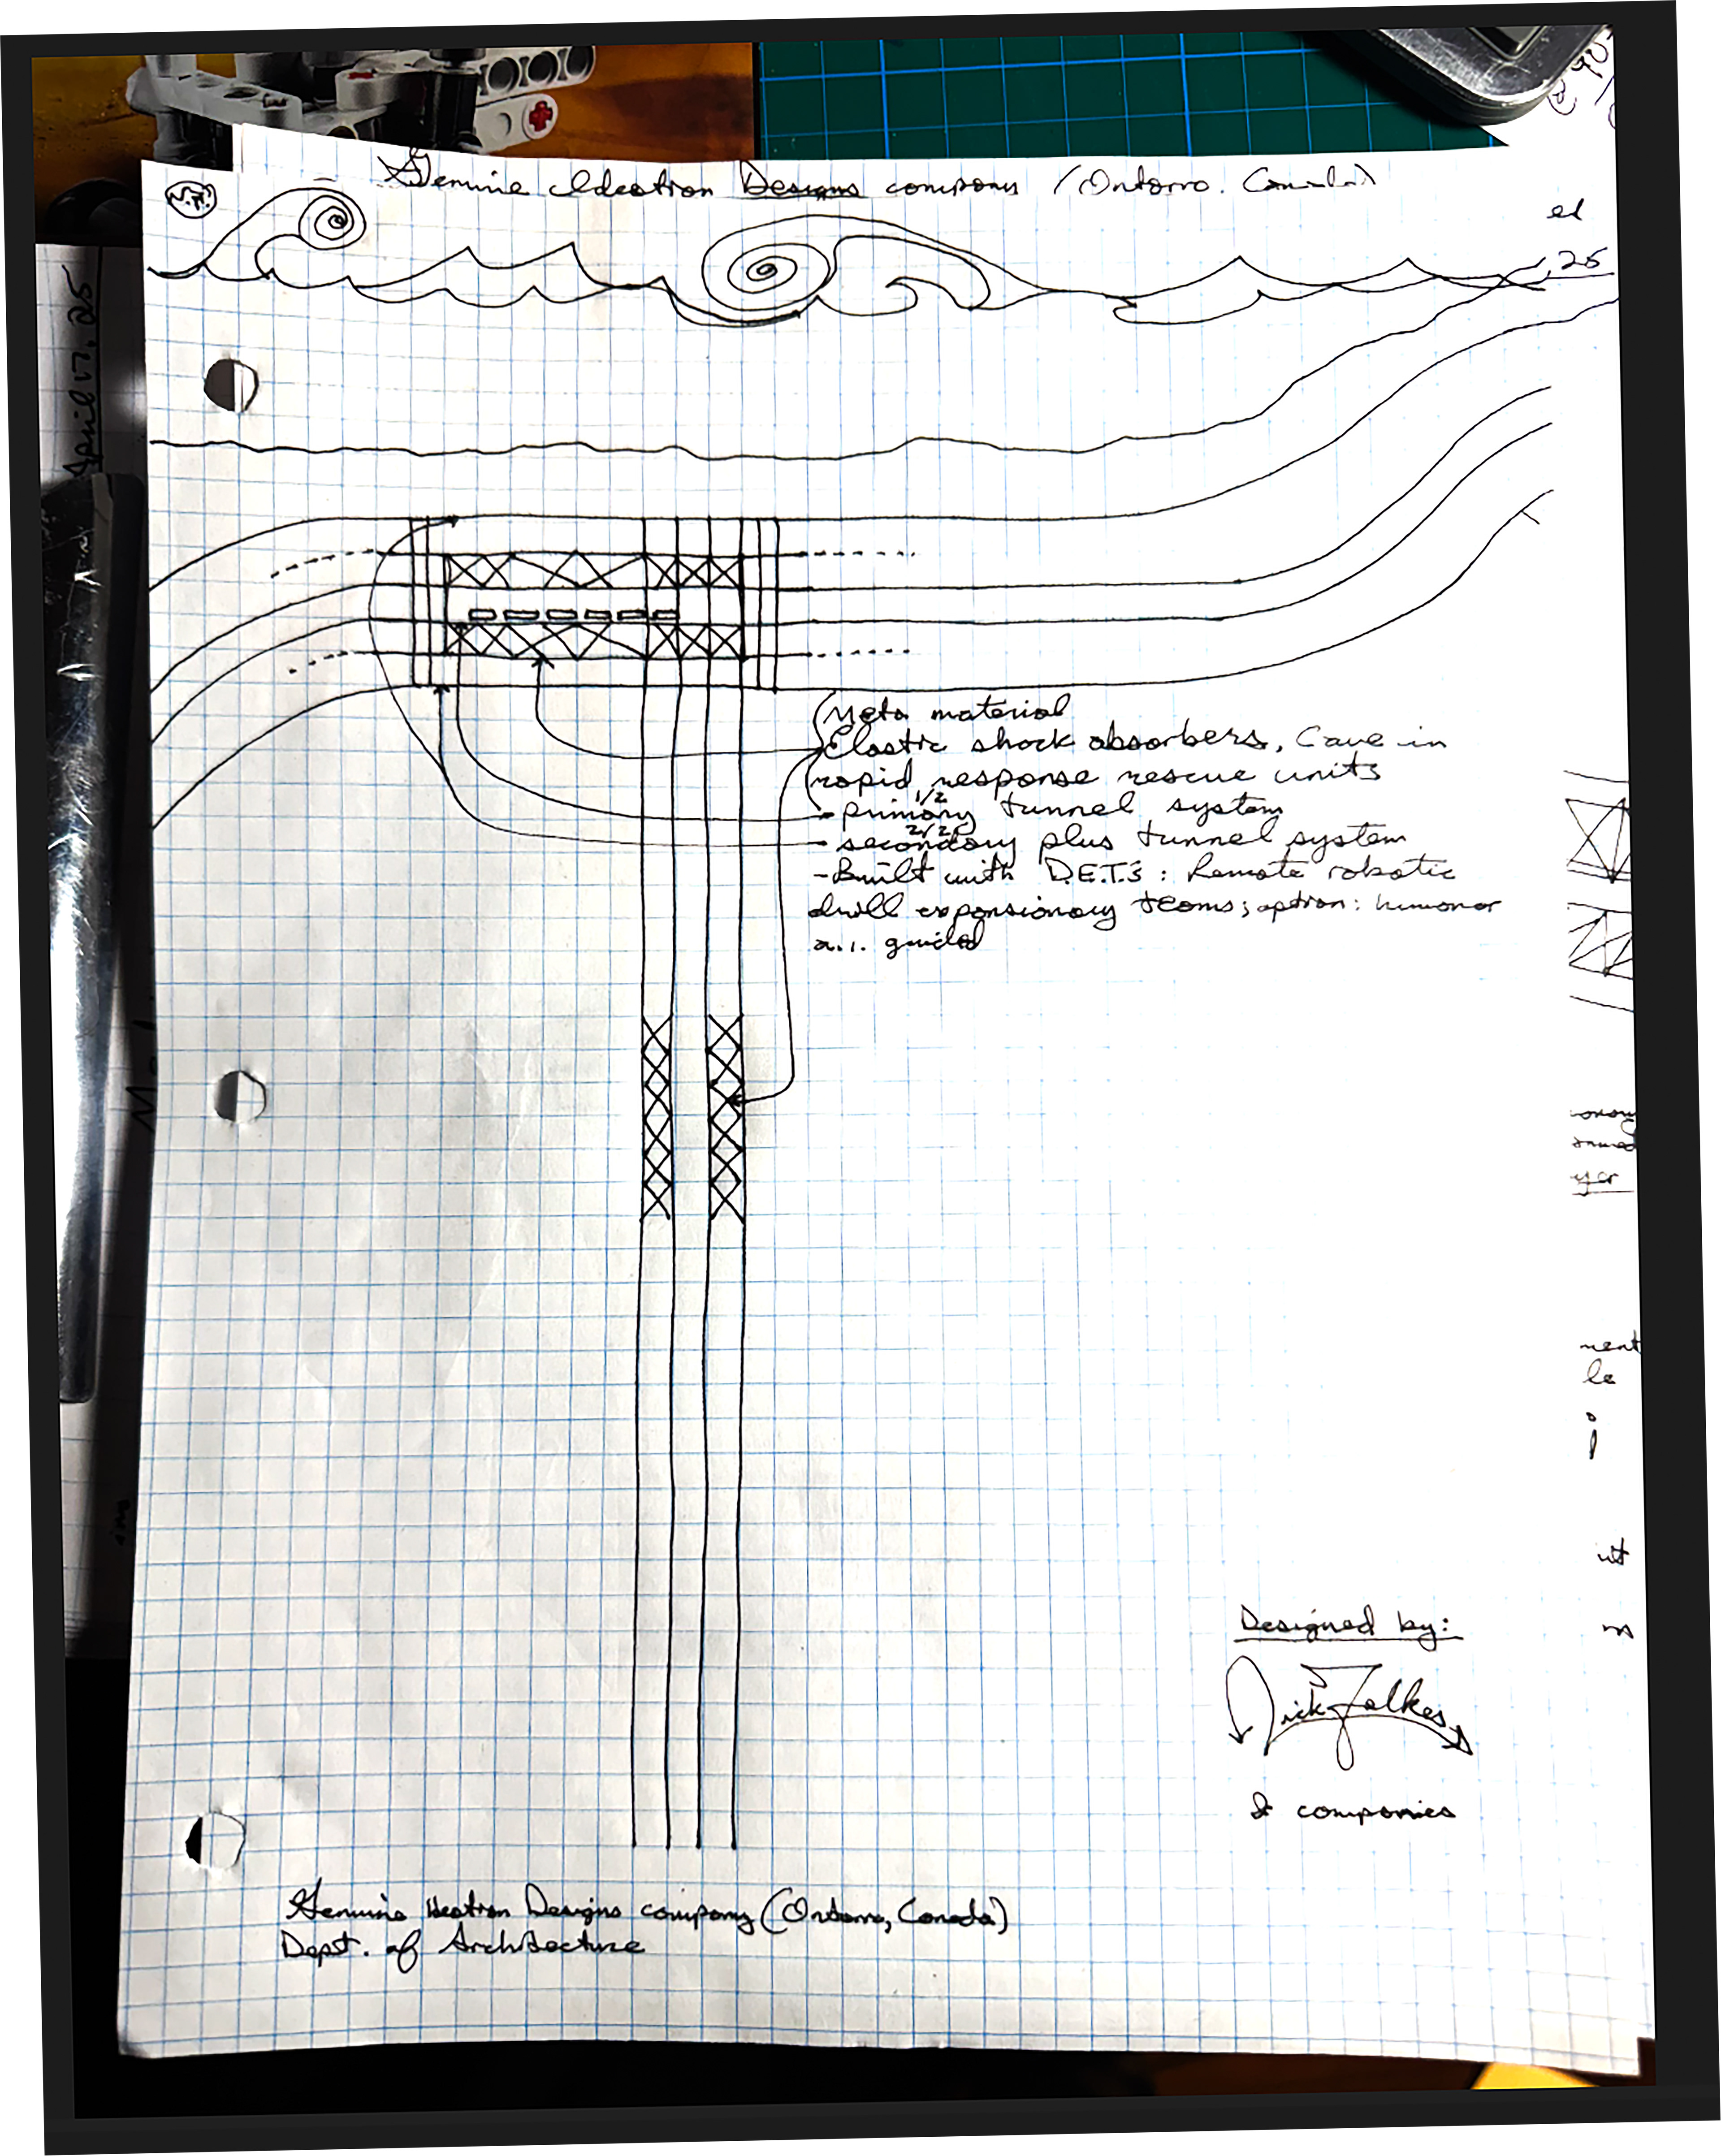 Genuine Ideation Designs company (Ontario. Canada)
N.F.
ed
, 25
April 17, 25
Meta material
Elastic shock absorbers, Cave in
rapid response rescue units
1/2
- primary tunnel system
2/2
- secondary plus tunnel system
- Built with D.E.T.S : Remote robotic
drill expansionary teams; option: human or
a.i. guided
ment
le
ut
Designed by:
Nick Falkes
& companies
Genuine Ideation Designs company (Ontario, Canada)
Dept. of Architecture